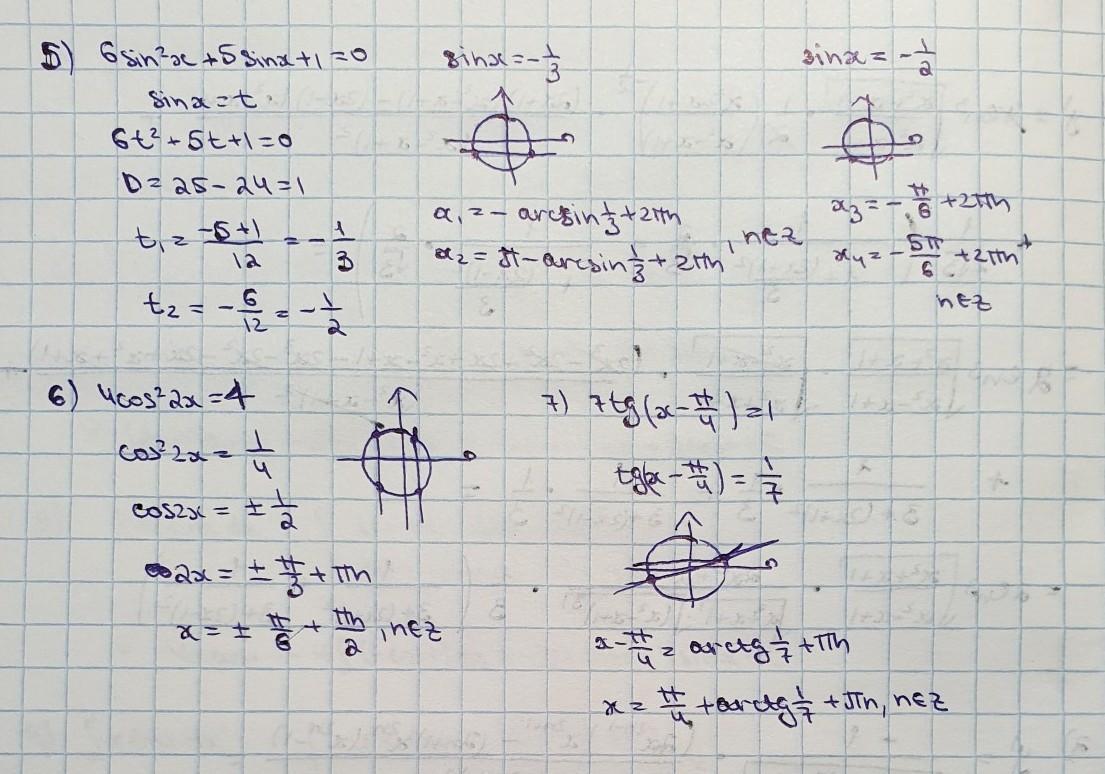 5) 6sin²x + 5sinx + 1 = 0
sinx = t
6t² + 5t + 1 = 0
D = 25 - 24 = 1
t₁ = (-5+1)/12 = -1/3
t₂ = -6/12 = -1/2
sinx = -1/3
x₁ = - arcsin 1/3 + 2πn
x₂ = π - arcsin 1/3 + 2πn, n∈Z
sinx = -1/2
x₃ = -π/6 + 2πn
x₄ = -5π/6 + 2πn
n∈Z
6) 4cos²2x = 4
cos²2x = 1/4
cos2x = ± 1/2
2x = ± π/3 + πn
x = ± π/6 + πn/2, n∈Z
7) 7tg(x - π/4) = 1
tg(x - π/4) = 1/7
x - π/4 = arctg 1/7 + πn
x = π/4 + arctg 1/7 + πn, n∈Z